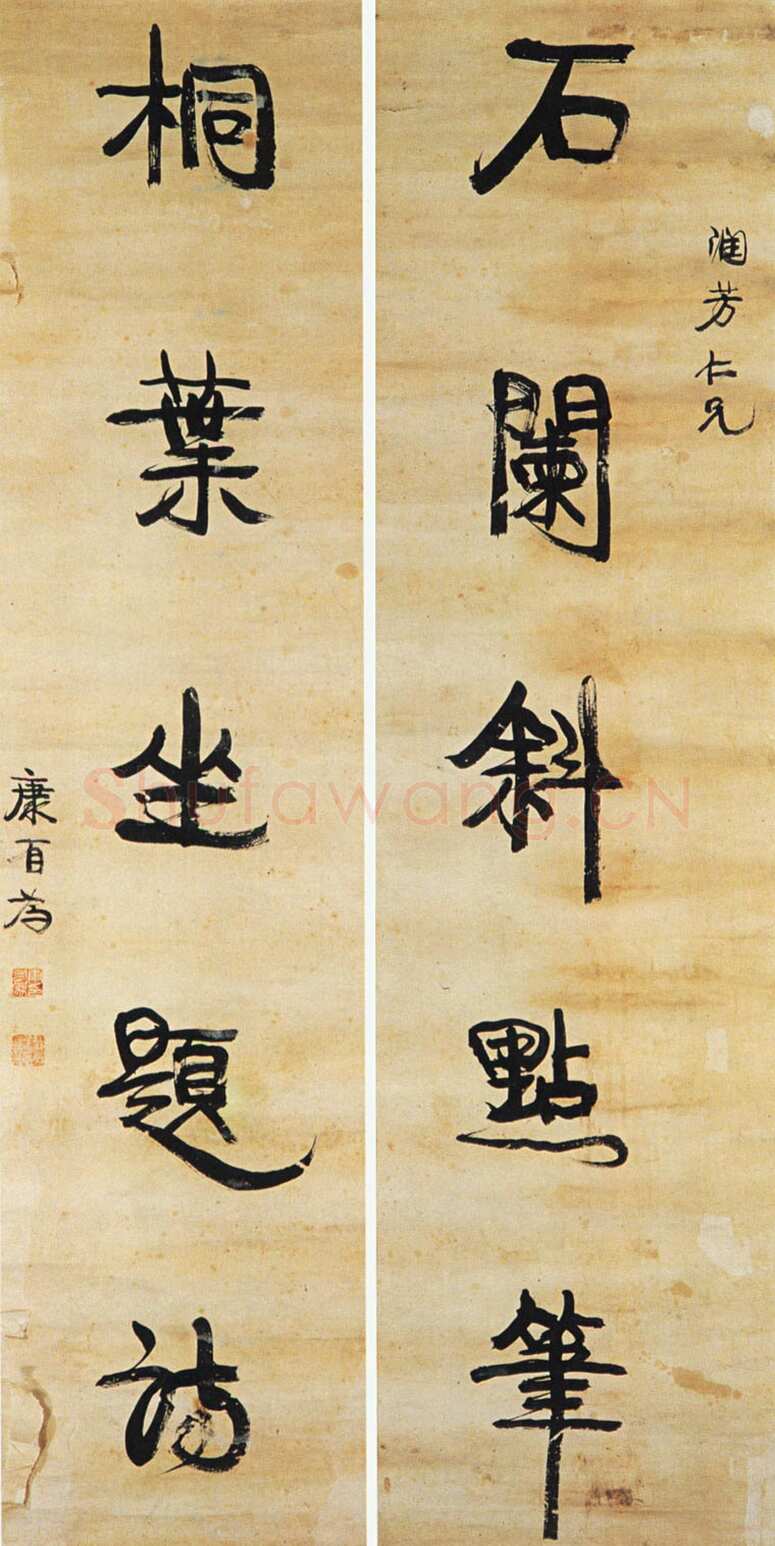 潤芳仁兄
石闌斜點筆
桐葉坐題詩
康有為
Shufawang.CN